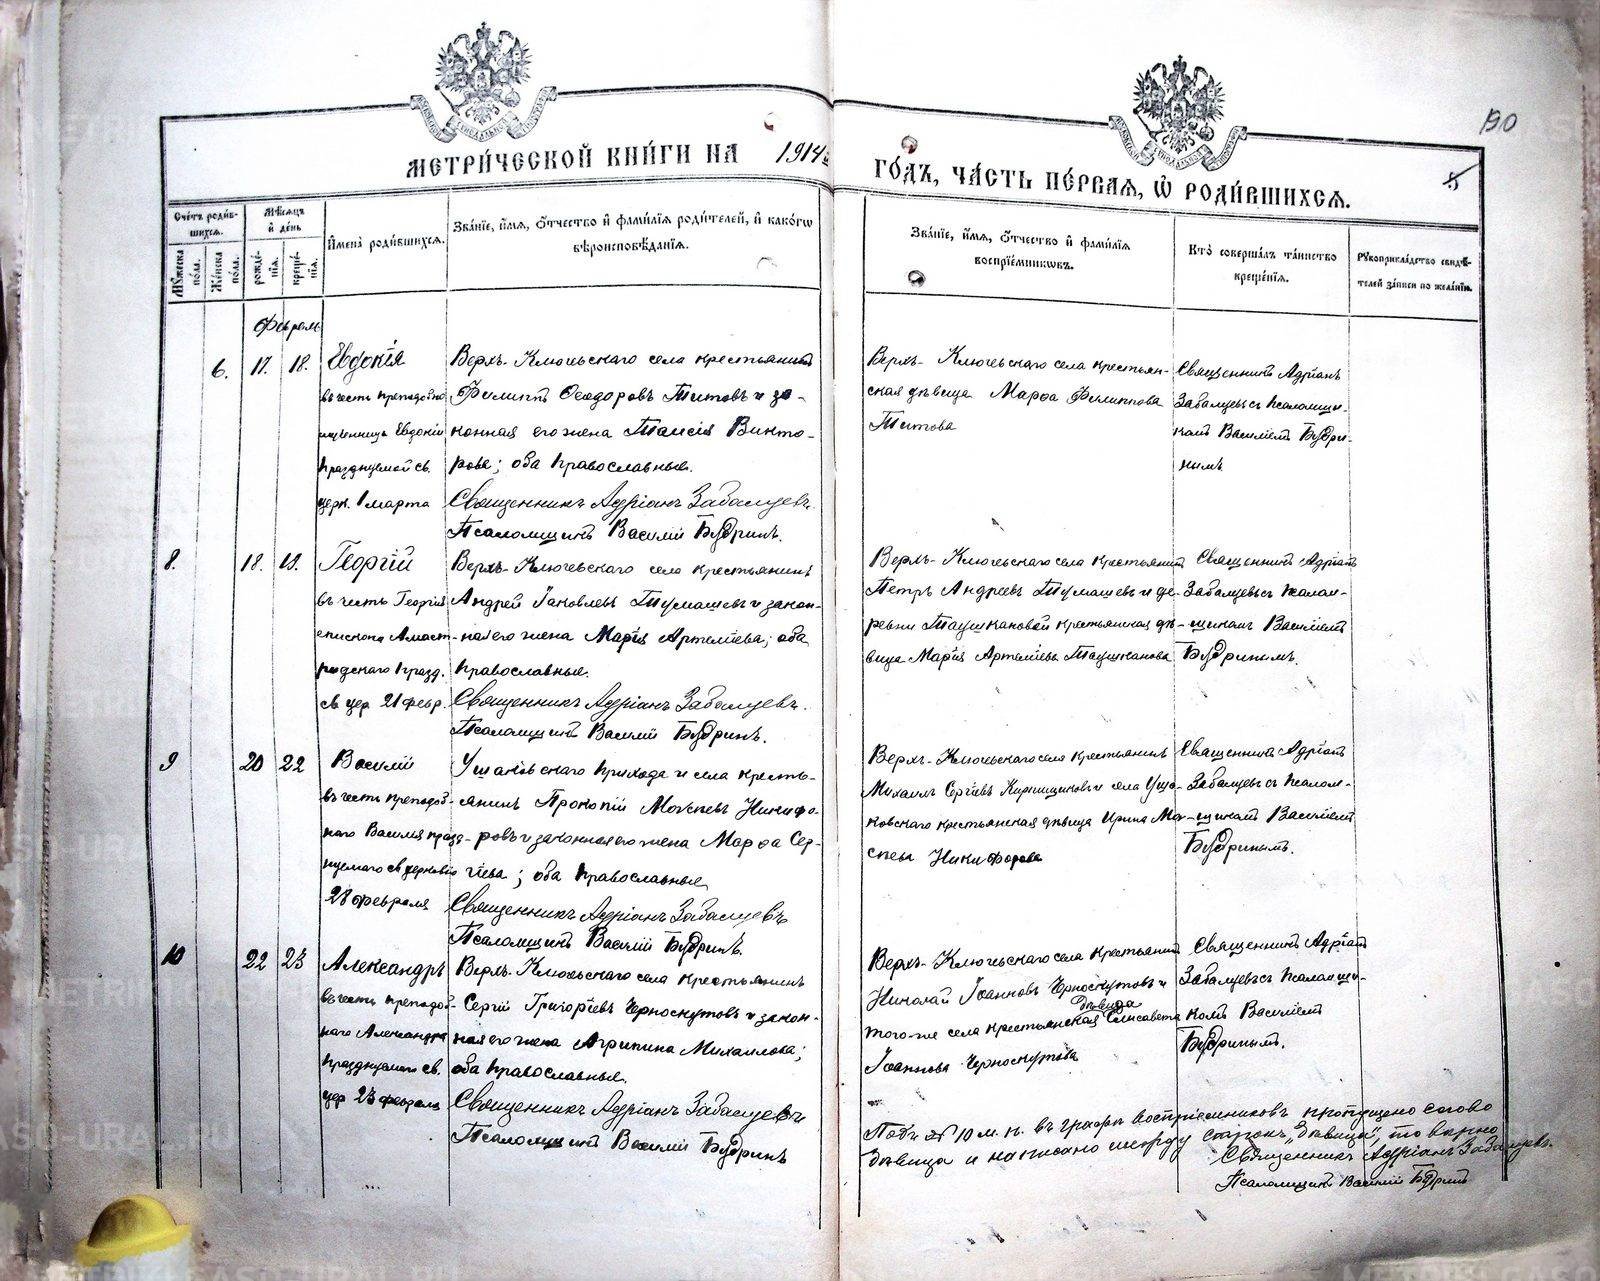 130
5
МЕТРИ́ЧЕСКОЙ КНИ́ГИ НА 1914 ГО́ДЪ, ЧА́СТЬ ПЕ́РВАЯ, Ѡ РОДИ́ВШИХСЯ.
Сче́тъ роди́вшихся.
Мѣ́сяцъ и де́нь
Имена̀ роди́вшихся.
Зва́нїе, и́мя, о́тчество и фами́лїя роди́телей, и како́гѡ вѣроисповѣ́данїя.
Зва́нїе, и́мя, о́тчество и фами́лїя воспрїе́мникѡвъ.
Кто̀ соверша́лъ та́инство креще́нїя.
Рукоприкла́дство свидѣ́телей за́писи по жела́нїю.
Му́жеска по́ла.
Же́нска по́ла.
рожде́нїя.
креще́нїя.
Февраль
6. 17. 18.
Евдокія
въ честь преподобно
мученицы Евдокіи
празднуемой св.
церк. 1 марта
Верхъ-Ключевскаго села крестьянинъ
Филиппъ Ѳеодоровъ Титовъ и за-
конная его жена Таисія Викто-
рова; оба православные.
Священникъ Адріанъ Забалуевъ.
Псаломщикъ Василій Будринъ.
Верхъ-Ключевскаго села крестьян-
ская дѣвица Марѳа Филиппова
Титова
Священникъ Адріанъ
Забалуевъ съ псаломщи-
комъ Василіемъ Будри-
нымъ
8. 18. 19.
Георгій
въ честь Георгія
епископа Амаст-
ридскаго празд.
св. цер. 21 февр.
Верхъ-Ключевскаго села крестьянинъ
Андрей Іаковлевъ Тумашевъ и закон-
ная его жена Марія Артеміева; оба
православные.
Священникъ Адріанъ Забалуевъ.
Псаломщикъ Василій Будринъ.
Верхъ-Ключевскаго села крестьянинъ
Петръ Андреевъ Тумашевъ и де-
ревни Таушкановой крестьянская дѣ-
вица Марія Артеміева Таушканова
Священникъ Адріанъ
Забалуевъ съ псалом-
щикомъ Василіемъ
Будринымъ.
9 20 22
Василій
въ честь преподоб-
наго Василія празд-
нуемаго св. церковію
28 февраля
Ушаковскаго прихода и села кресть-
янинъ Прокопій Моѵсеевъ Никифо-
ровъ и законная его жена Марѳа Сер-
гіева; оба православные
Священникъ Адріанъ Забалуевъ
Псаломщикъ Василій Будринъ.
Верхъ-Ключевскаго села крестьянинъ
Михаилъ Сергіевъ Кирпищиковъ и села Уша-
ковскаго крестьянская дѣвица Ирина Мо-
сеева Никифорова
Священникъ Адріанъ
Забалуевъ съ псалом-
щикомъ Василіемъ
Будринымъ.
10 22 23
Александръ
въ честь преподоб-
наго Александра
празднуемаго св.
цер 23 февраля
Верхъ-Ключевскаго села крестьянинъ
Сергій Григоріевъ Черноскутовъ и закон-
ная его жена Агрипина Михаилова;
оба православные.
Священникъ Адріанъ Забалуевъ
Псаломщикъ Василій Будринъ
Верхъ-Ключевскаго села крестьянинъ
Николай Іоанновъ Черноскутовъ и
дѣвица
того-же села крестьянская Елисавета
Іоаннова Черноскутова
Священникъ Адріанъ
Забалуевъ съ псаломщи-
комъ Василіемъ
Будринымъ.
Подъ № 10 м. п. въ графѣ воспріемниковъ пропущено слово
дѣвица и написано между строкъ „дѣвица", то вѣрно
Священникъ Адріанъ Забалуевъ.
Псаломщикъ Василій Будринъ